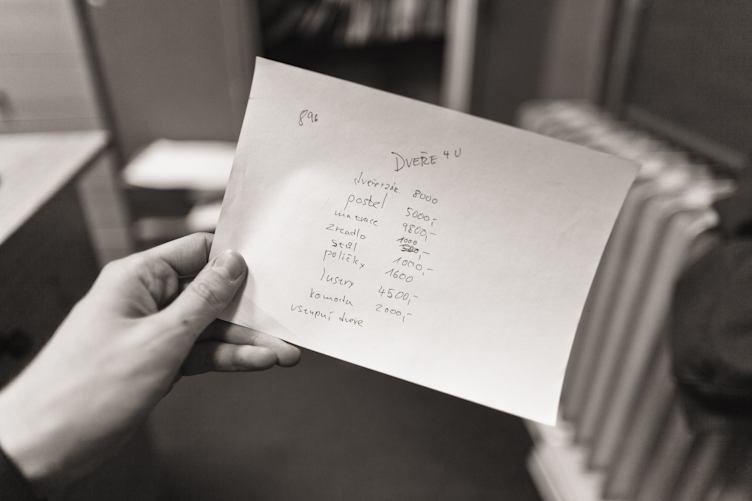 896
DVEŘE 4U
dveře zák 8000
postel 5000,-
matrace 9800,-
zrcadlo 1000 500,-
stůl 1000,-
poličky 1600
lustry 4500,-
komoda 2000,-
vstupní dveře